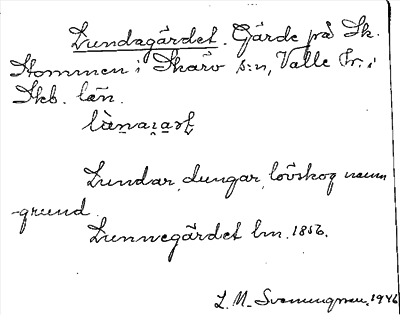 Lundagärdet. Gärde på Sk.
Kommen i Skärv s:n, Valle hr. i
Skb. län.
Lundar, dungar, lövskog
-grund.
Lunnegärdet lm. 1856.
L. M. Svenungsson, 1946